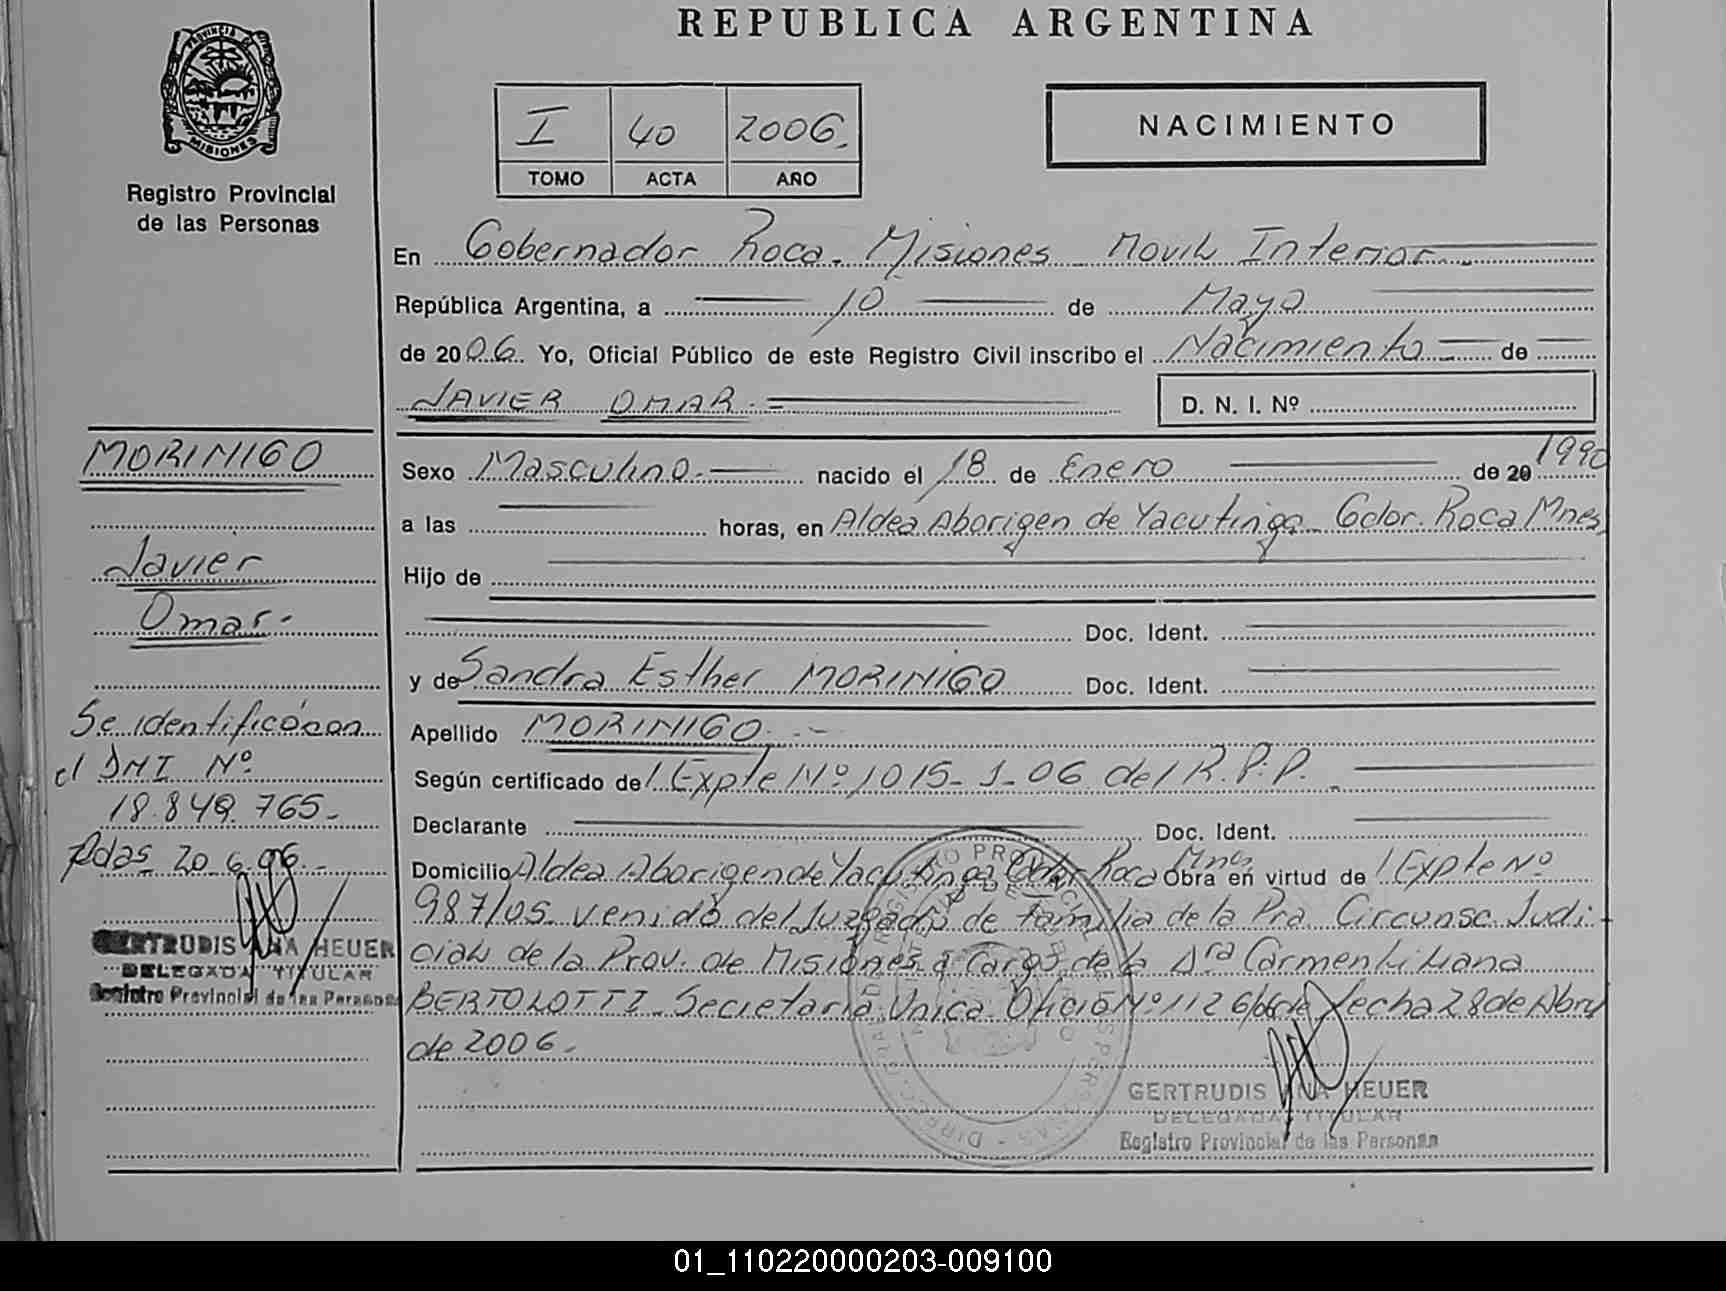 REPUBLICA ARGENTINA
PROVINCIA DE
MISIONES
Registro Provincial
de las Personas
I 40 2006.
TOMO ACTA AÑO
NACIMIENTO
En Gobernador Roca. Misiones Movil Interior.
República Argentina, a 10 de Mayo
de 2006. Yo, Oficial Público de este Registro Civil inscribo el Nacimiento de
JAVIER OMAR.
D. N. I. Nº
MORINIGO
Javier
Omar.
Sexo Masculino. nacido el 18 de Enero de 20 1990
a las horas, en Aldea Aborigen de Yacutinga Gdor. Roca Mnes
Hijo de
Doc. Ident.
y de Sandra Esther MORINIGO Doc. Ident.
Apellido MORINIGO.
Según certificado de Expte Nº 1015-1-06 del R.P.P.
Declarante Doc. Ident.
Domicilio Aldea Aborigen de Yacutinga Gdor Roca Mnes Obra en virtud de Expte Nº
987/05 venido del Juzgado de Familia de la Pra. Circunsc. Judi-
cial de la Prov. de Misiones a Cargo de la Dra Carmen Liliana
BERTOLOTTI Secretaria Unica Oficio Nº 1126/06 de fecha 28 de Abril
de 2006.
Se identificó con
el DNI Nº
18.849.765.
Pdas 20.6.06.
GERTRUDIS ANA HEUER
DELEGADA TITULAR
Registro Provincial de las Personas
GERTRUDIS ANA HEUER
DELEGADA TITULAR
Registro Provincial de las Personas
01_110220000203-009100